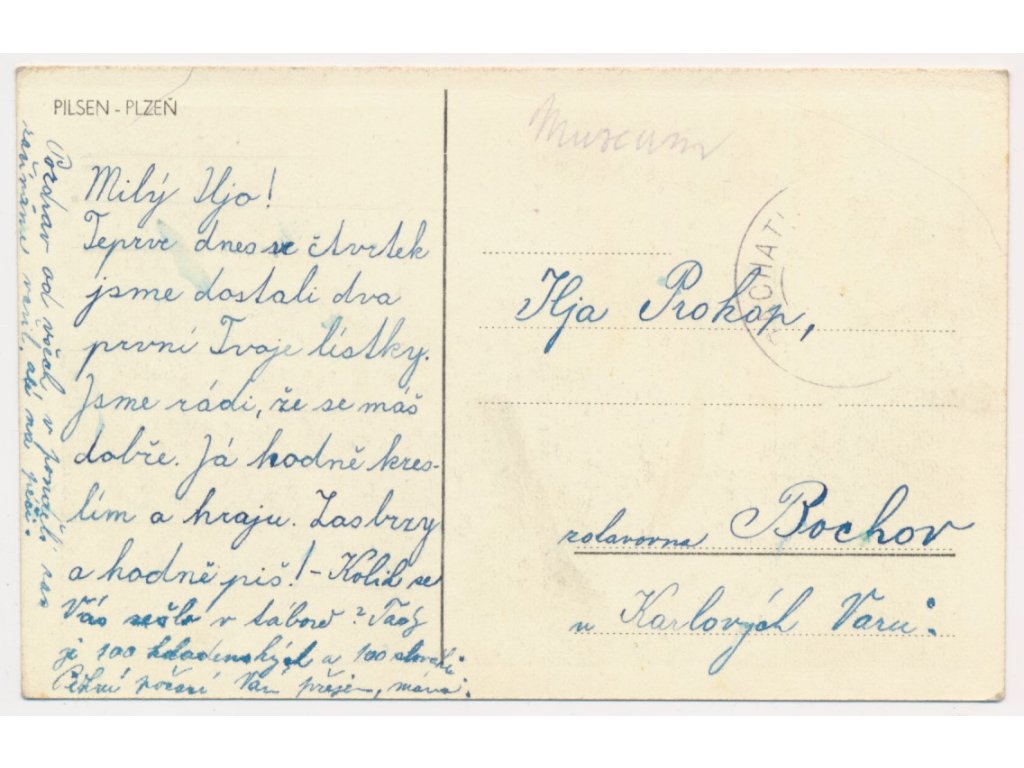 PILSEN - PLZEŇ
Milý Iljo!
Teprve dnes ve čtvrtek
jsme dostali dva
první Tvoje lístky.
Jsme rádi, že se máš
dobře. Já hodně kres-
lím a hraju. Zas brzy
a hodně piš! - Kolik se
Vás sešlo v táboře? Tady
je 100 kladenských a 100
Pěkné počasí Vám přejem, máma.
Pozdrav od všech, v pondělí zas
začínáme
Museum
CHAT
Ilja Prokop,
zotavovna Bochov
u Karlových Varů.